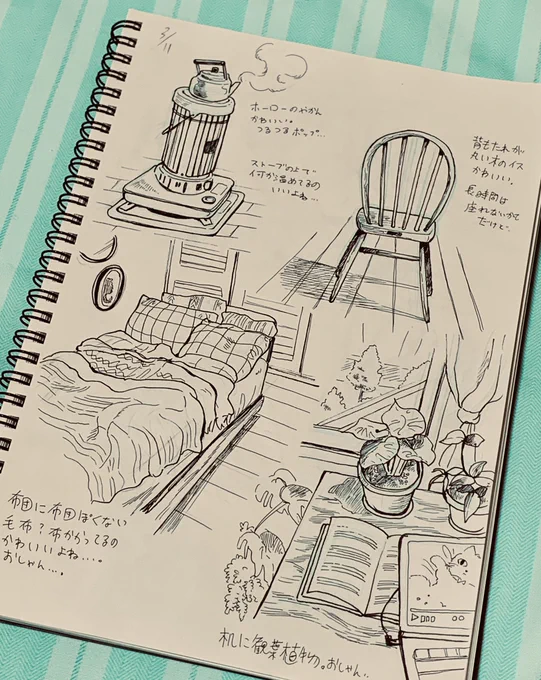 3/11
ホーローのやかん
かわいい。
つるつるポップ...
ストーブの上で
何か温めてるの
いいよね...
背もたれが
丸い木のイス
かわいい。
長時間は
座れないかも
だけど。
布団に布団ぽくない
毛布?布かかってるの
かわいいよね...。
おしゃん...。
机に観葉植物。おしゃん..